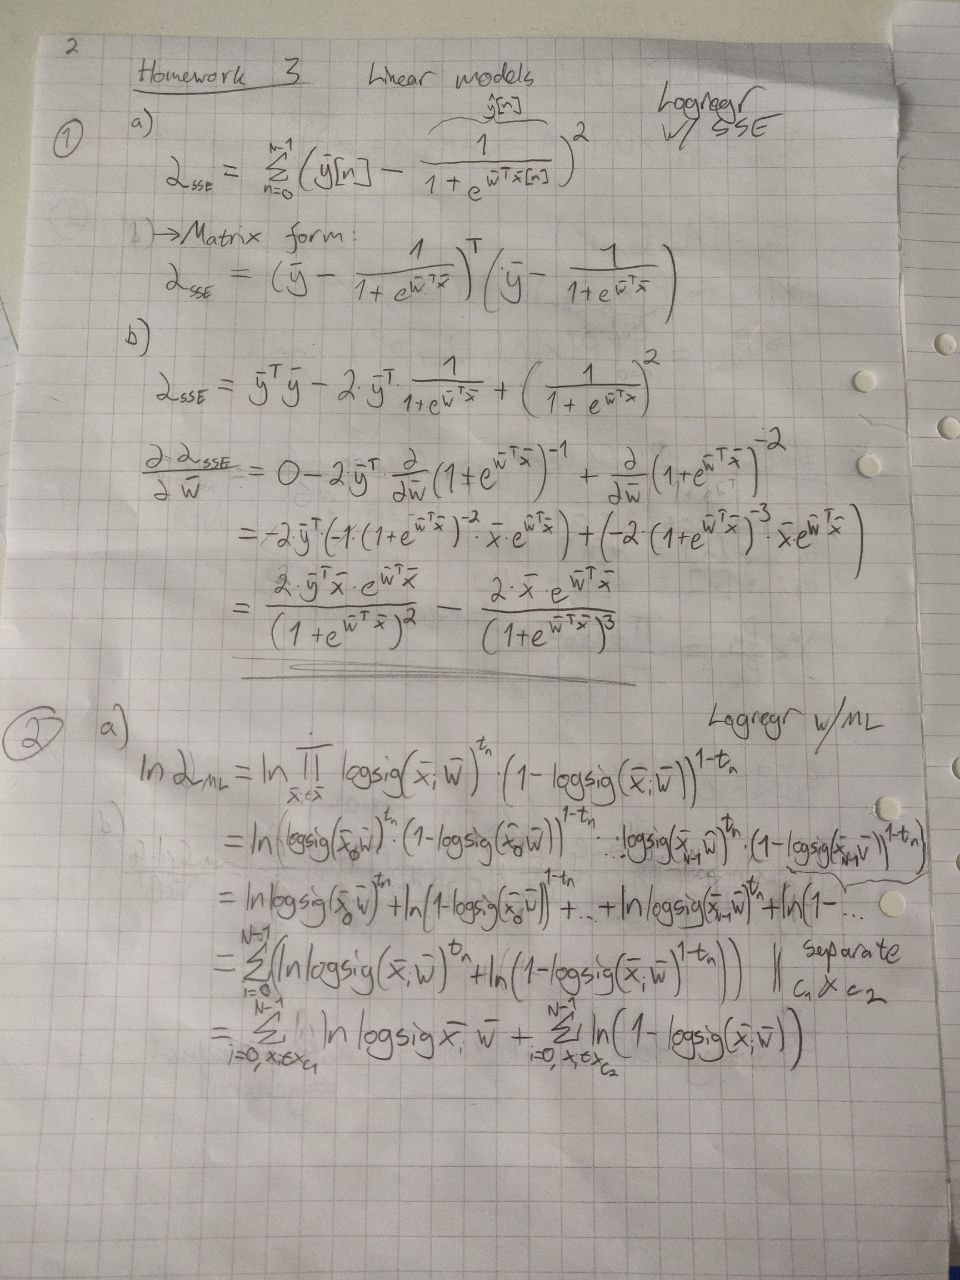 2
Homework 3 Linear models
Logregr w/ SSE
① a)
ŷ[n]
ℒ_SSE = Σ_{n=0}^{N-1} (ȳ[n] - 1/(1 + e^{w̄ᵀx̄[n]}))²
b) → Matrix form:
ℒ_SSE = (ȳ - 1/(1 + e^{w̄ᵀx̄}))ᵀ (ȳ - 1/(1 + e^{w̄ᵀx̄}))
b)
ℒ_SSE = ȳᵀȳ - 2·ȳᵀ·1/(1+e^{w̄ᵀx̄}) + (1/(1 + e^{w̄ᵀx}))²
∂ℒ_SSE/∂w̄ = 0 - 2·ȳᵀ·∂/∂w̄ (1+e^{w̄ᵀx̄})^{-1} + ∂/∂w̄ (1+e^{w̄ᵀx̄})^{-2}
= -2·ȳᵀ·(-1·(1+e^{w̄ᵀx̄})^{-2}·x̄·e^{w̄ᵀx̄}) + (-2·(1+e^{w̄ᵀx̄})^{-3}·x̄·e^{w̄ᵀx̄})
= 2·ȳᵀx̄·e^{w̄ᵀx̄}/(1+e^{w̄ᵀx̄})² - 2·x̄·e^{w̄ᵀx̄}/(1+e^{w̄ᵀx̄})³
② a) Logregr w/ML
ln ℒ_ML = ln ∏_{x̄ᵢ∈x̄} logsig(x̄ᵢ w̄)^{tₙ}·(1-logsig(x̄ᵢ w̄))^{1-tₙ}
b)
= ln(logsig(x̄₀w̄)^{tₙ}·(1-logsig(x̄₀w̄))^{1-tₙ}·...·logsig(x̄_{N-1}w̄)^{tₙ}·(1-logsig(x̄_{N-1}w̄))^{1-tₙ})
= ln logsig(x̄₀w̄)^{tₙ}+ln(1-logsig(x̄₀w̄))^{1-tₙ}+...+ln logsig(x̄_{N-1}w̄)^{tₙ}+ln(1-...
= Σ_{i=0}^{N-1}(ln logsig(x̄ᵢw̄)^{tₙ}+ln(1-logsig(x̄ᵢw̄)^{1-tₙ})) || separate c₁ & c₂
= Σ_{i=0, xᵢ∈x_{c₁}}^{N-1} ln logsig x̄ᵢ w̄ + Σ_{i=0, xᵢ∈x_{c₂}}^{N-1} ln(1-logsig(x̄ᵢw̄))